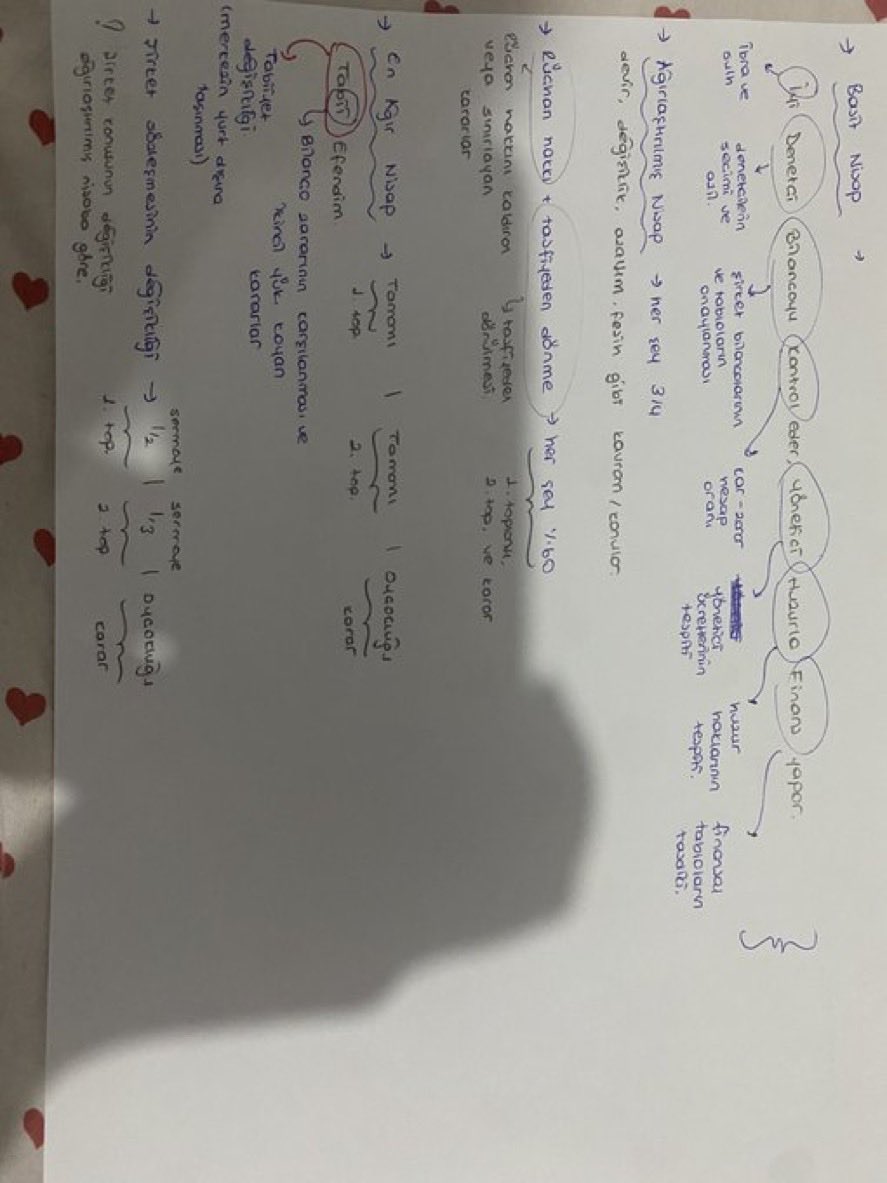 → Basit Nisap →
İyi Denetçi Bilançoyu kontrol eder, yönetici Huzurla Finans yapar.
İbra ve sulh
denetçilerin seçimi ve azil.
şirket bilançolarının ve tabloların onaylanması
kar-zarar hesap oranı
yönetici ücretlerinin tespiti
huzur haklarının tespiti.
finansal tabloların tasdiki.
→ Ağırlaştırılmış Nisap → her şey 3/4
devir, değişiklik, azalım, fesih gibi kavram / konular.
→ Rüçhan hakkı + tasfiyeden dönme → her şey %60
Rüçhan hakkını kaldıran veya sınırlayan kararlar
tasfiyeden dönülmesi
1. toplantı, 2. top. ve karar
→ En Ağır Nisap → Tamamı | Tamamı | Oyçokluğu
1. top. 2. top. karar
Tabii Efendim.
Bilanço zararının karşılanması ve
ikincil yük koyan kararlar
Tabiiyet değişikliği (merkezin yurt dışına taşınması)
→ Şirket sözleşmesinin değişikliği → sermaye 1/2 | sermaye 1/3 | Oyçokluğu
1. top. 2 top karar
! Şirket konusunun değişikliği ağırlaştırılmış nisaba göre.